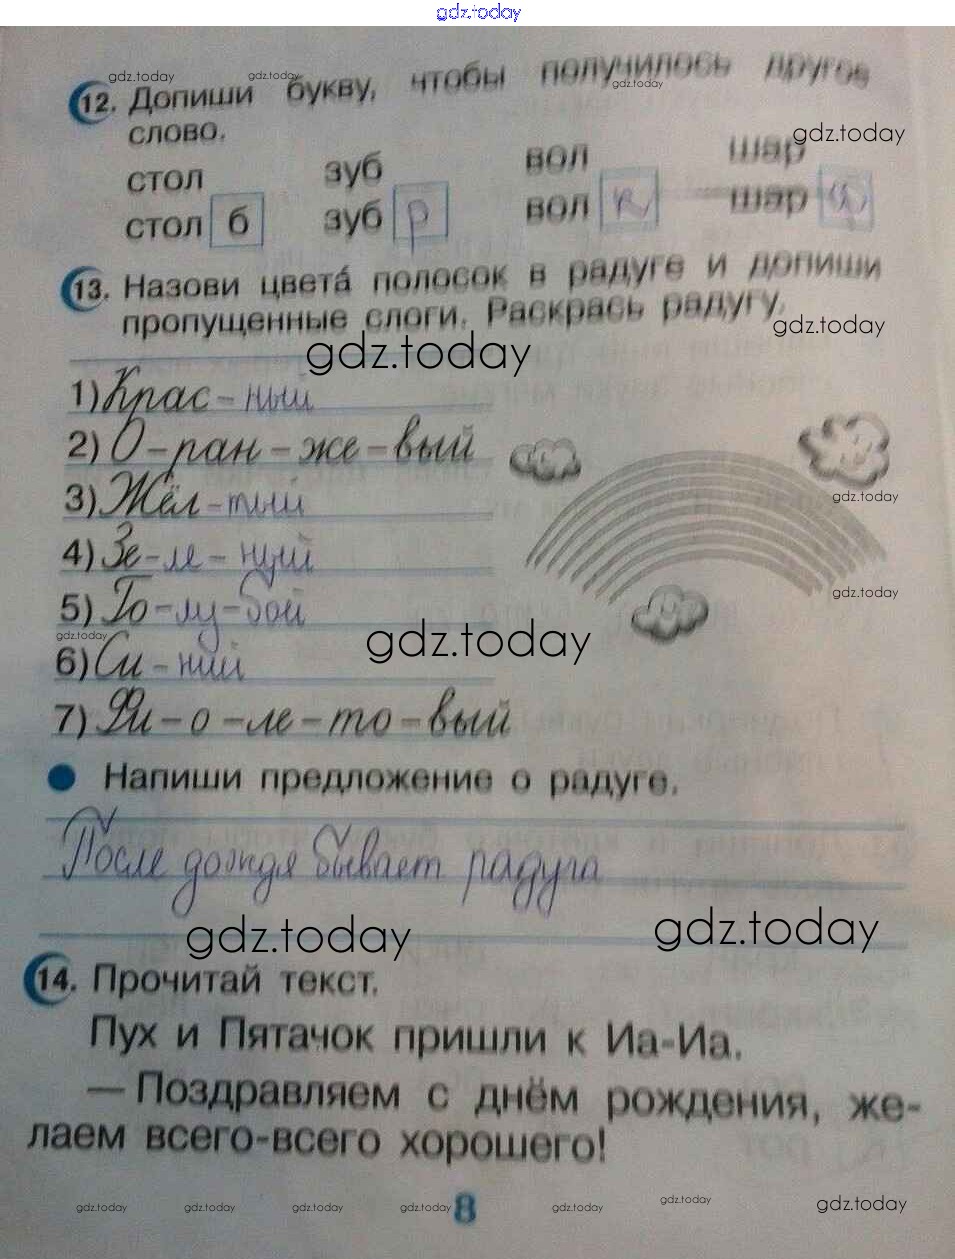 gdz.today
gdz.today gdz.today gdz.today
12. Допиши букву, чтобы получилось другое
слово.
gdz.today
стол зуб вол шар
стол б зуб р вол к шар ф
13. Назови цвета́ полосок в радуге и допиши
пропущенные слоги. Раскрась радугу.
gdz.today gdz.today
1) Крас-ный
2) О-ран-же-вый
3) Жёл-тый
gdz.today
4) Зе-ле-ный
gdz.today
5) Го-лу-бой
gdz.today gdz.today
6) Си-ний
7) Фи-о-ле-то-вый
Напиши предложение о радуге.
После дождя бывает радуга
gdz.today gdz.today
14. Прочитай текст.
Пух и Пятачок пришли к Иа-Иа.
— Поздравляем с днём рождения, же-
лаем всего-всего хорошего!
gdz.today gdz.today gdz.today gdz.today 8 gdz.today gdz.today gdz.today